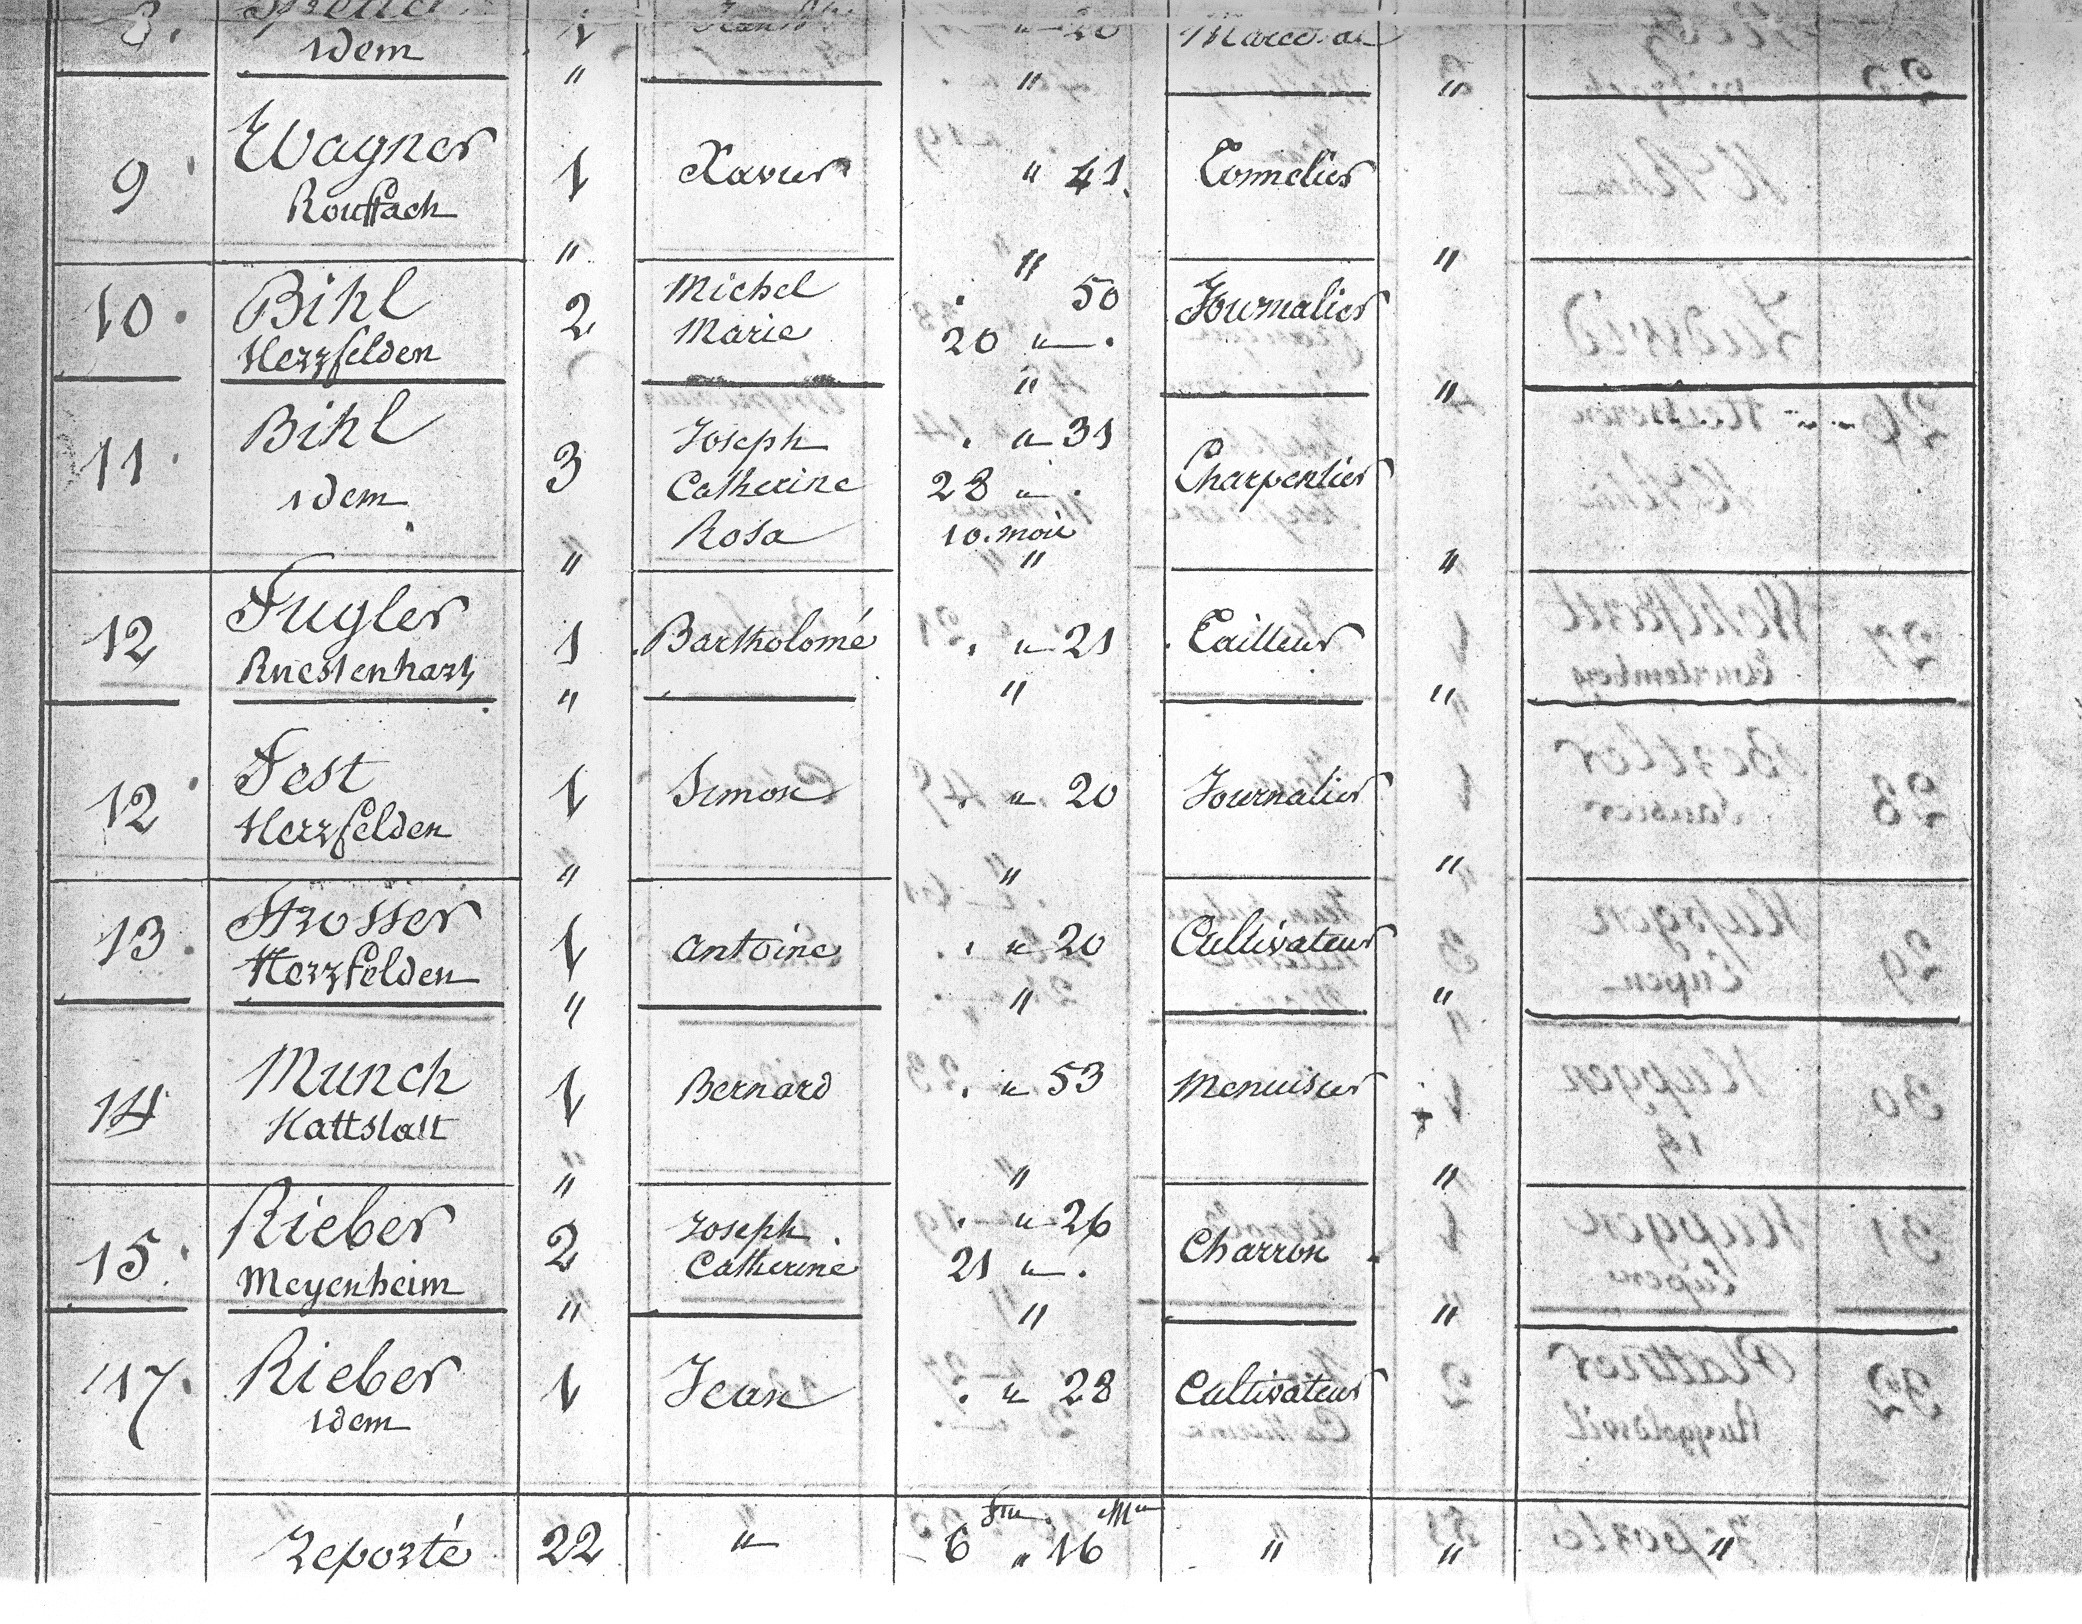 8. 1 20
idem " " "
9. Wagner 1 Xavier " 41 Tonnelier
Rouffach
" " "
10. Bihl 2 Michel 50 Journalier
Marie 20 "
Herzfelden
" "
11. Bihl 3 Joseph " 31 Charpentier
idem Catherine 28 "
Rosa 10. mois
" " "
12 Fugler 1 Bartholomé " 21 Tailleur
Ruestenhart
" " "
12 Fest 1 Simon " 20 Journalier
Herzfelden
" " "
13. Strosser 1 Antoine " 20 Cultivateur
Herzfelden
" " "
14 Munch 1 Bernard " 53 Menuisier
Hattstatt
" " "
15. Rieber 2 Joseph " 26 Charron
Meyenheim Catherine 21 "
" " "
17. Rieber 1 Jean " 28 Cultivateur
idem
Reporté 22 " 6 " 16 " " "